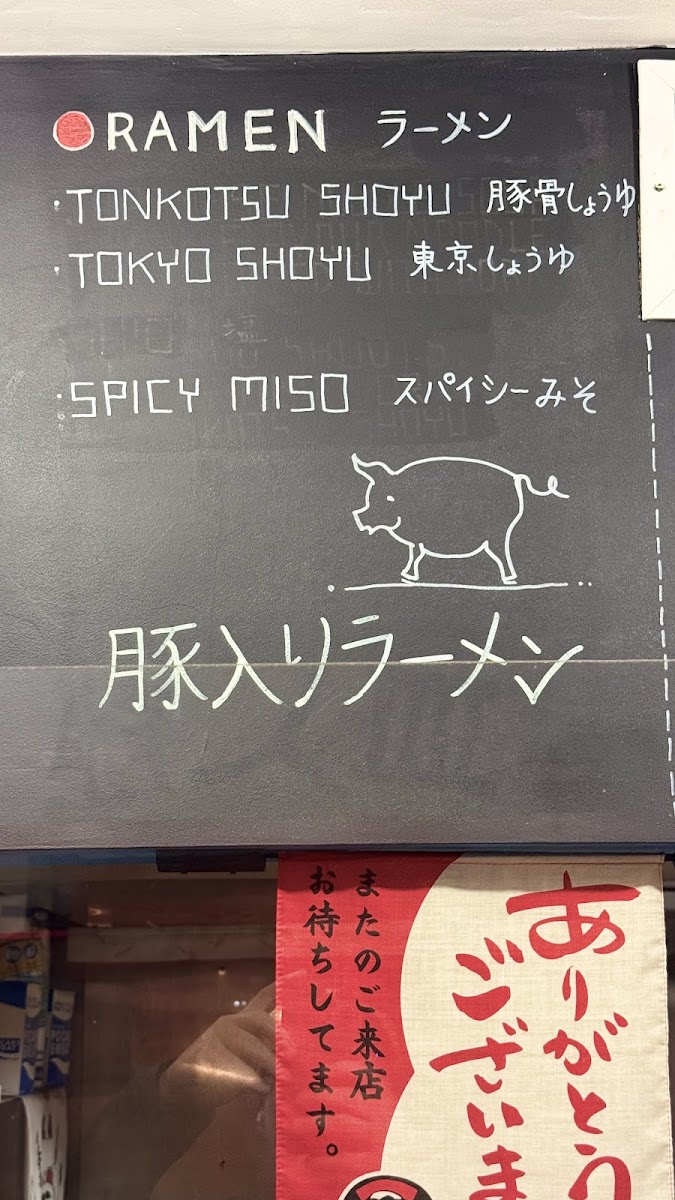 RAMEN ラーメン
・TONKOTSU SHOYU 豚骨しょうゆ
・TOKYO SHOYU 東京しょうゆ
塩
・SPICY MISO スパイシーみそ
豚入りラーメン
ありがとう
ございま
またのご来店
お待ちしてます。